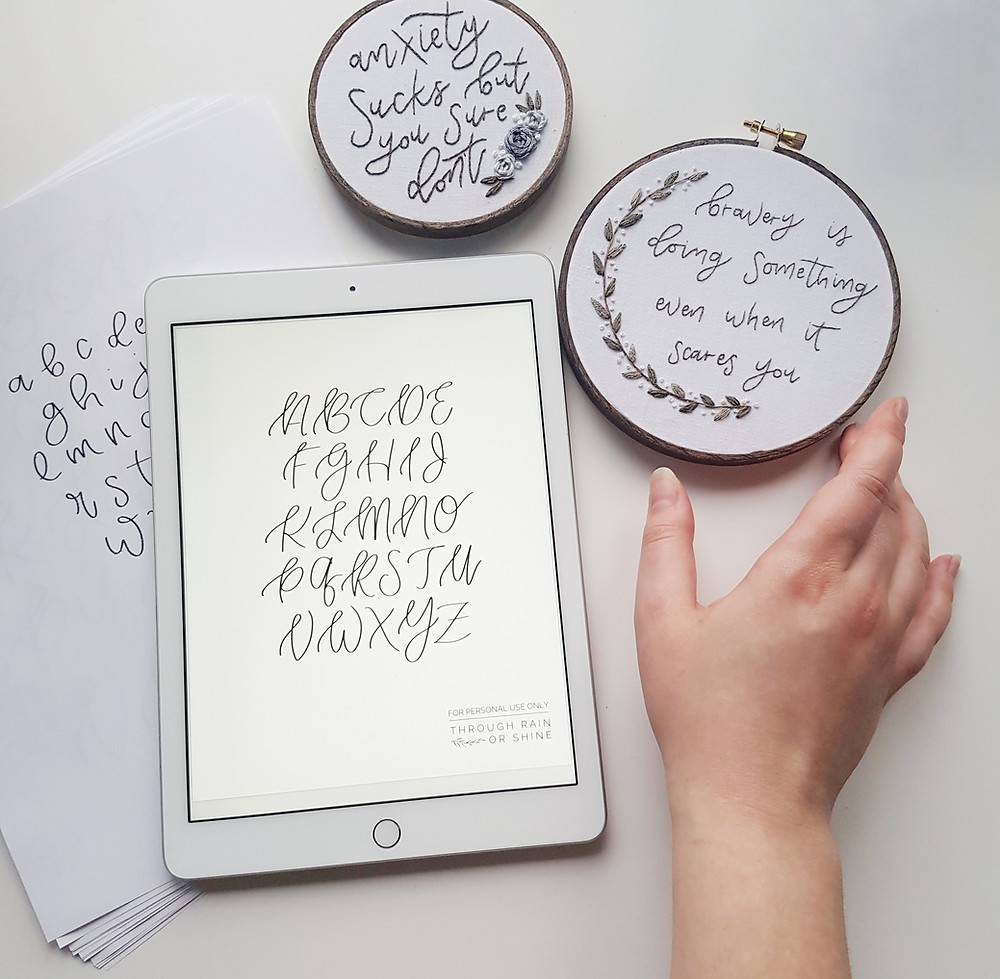 anxiety
sucks but
you sure
dont
bravery is
doing something
even when it
scares you
a b c d e
g h i j
l m n o
r s t
w
A B C D E
F G H I J
K L M N O
P Q R S T U
V W X Y Z
FOR PERSONAL USE ONLY
THROUGH RAIN
OR SHINE